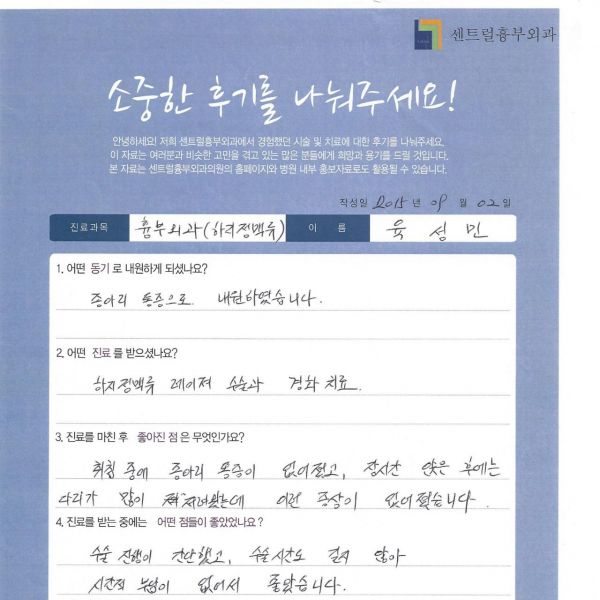 센트럴흉부외과
소중한 후기를 나눠주세요!
안녕하세요! 저희 센트럴흉부외과에서 경험했던 시술 및 치료에 대한 후기를 나눠주세요.
이 자료는 여러분과 비슷한 고민을 겪고 있는 많은 분들에게 희망과 용기를 드릴 것입니다.
본 자료는 센트럴흉부외과의원의 홈페이지와 병원 내부 홍보자료로도 활용될 수 있습니다.
작성일 2015 년 09 월 02 일
진료과목 흉부외과(하지정맥류) 이 름 육 성 민
1. 어떤 동기 로 내원하게 되셨나요?
종아리 통증으로 내원하였습니다.
2. 어떤 진료 를 받으셨나요?
하지정맥류 레이져 수술과 경화 치료.
3. 진료를 마친 후 좋아진 점 은 무엇인가요?
취침 중에 종아리 통증이 없어졌고, 장시간 앉은 후에는
다리가 많이 저려왔는데 이런 증상이 없어졌습니다.
4. 진료를 받는 중에는 어떤 점들이 좋았었나요?
수술 진행이 간단했고, 수술시간도 길지 않아
시간적 부담이 없어서 좋았습니다.